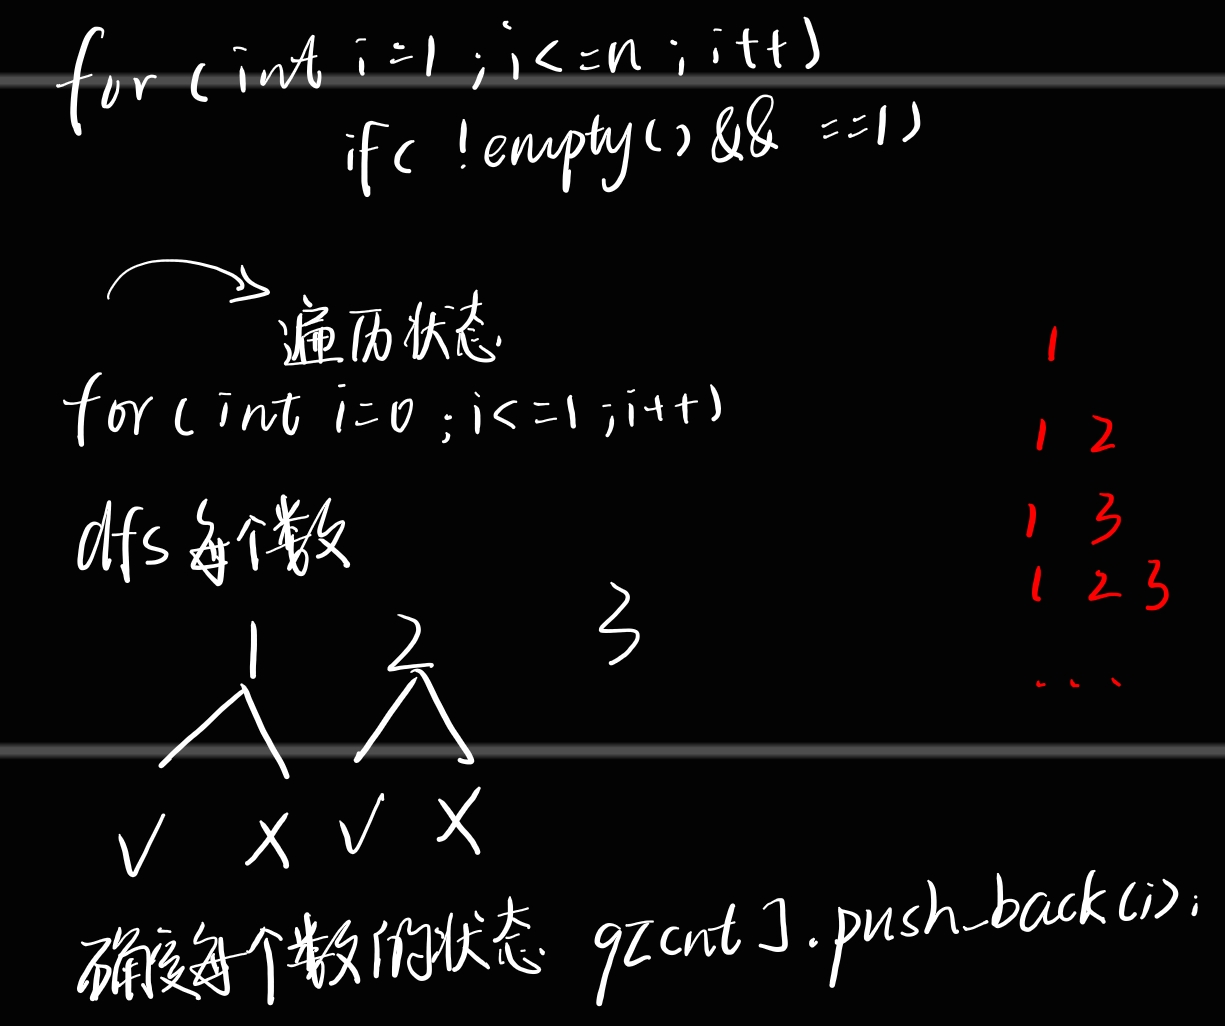 for (int i=1 ; i<=n ; i++)
if( !empty() && ==1)
遍历状态
for (int i=0 ; i<=1 ; i++)
dfs 每个数
1 2 3
√ × √ ×
确定每个数的状态 q[cnt].push_back(i);
1
1 2
1 3
1 2 3
...